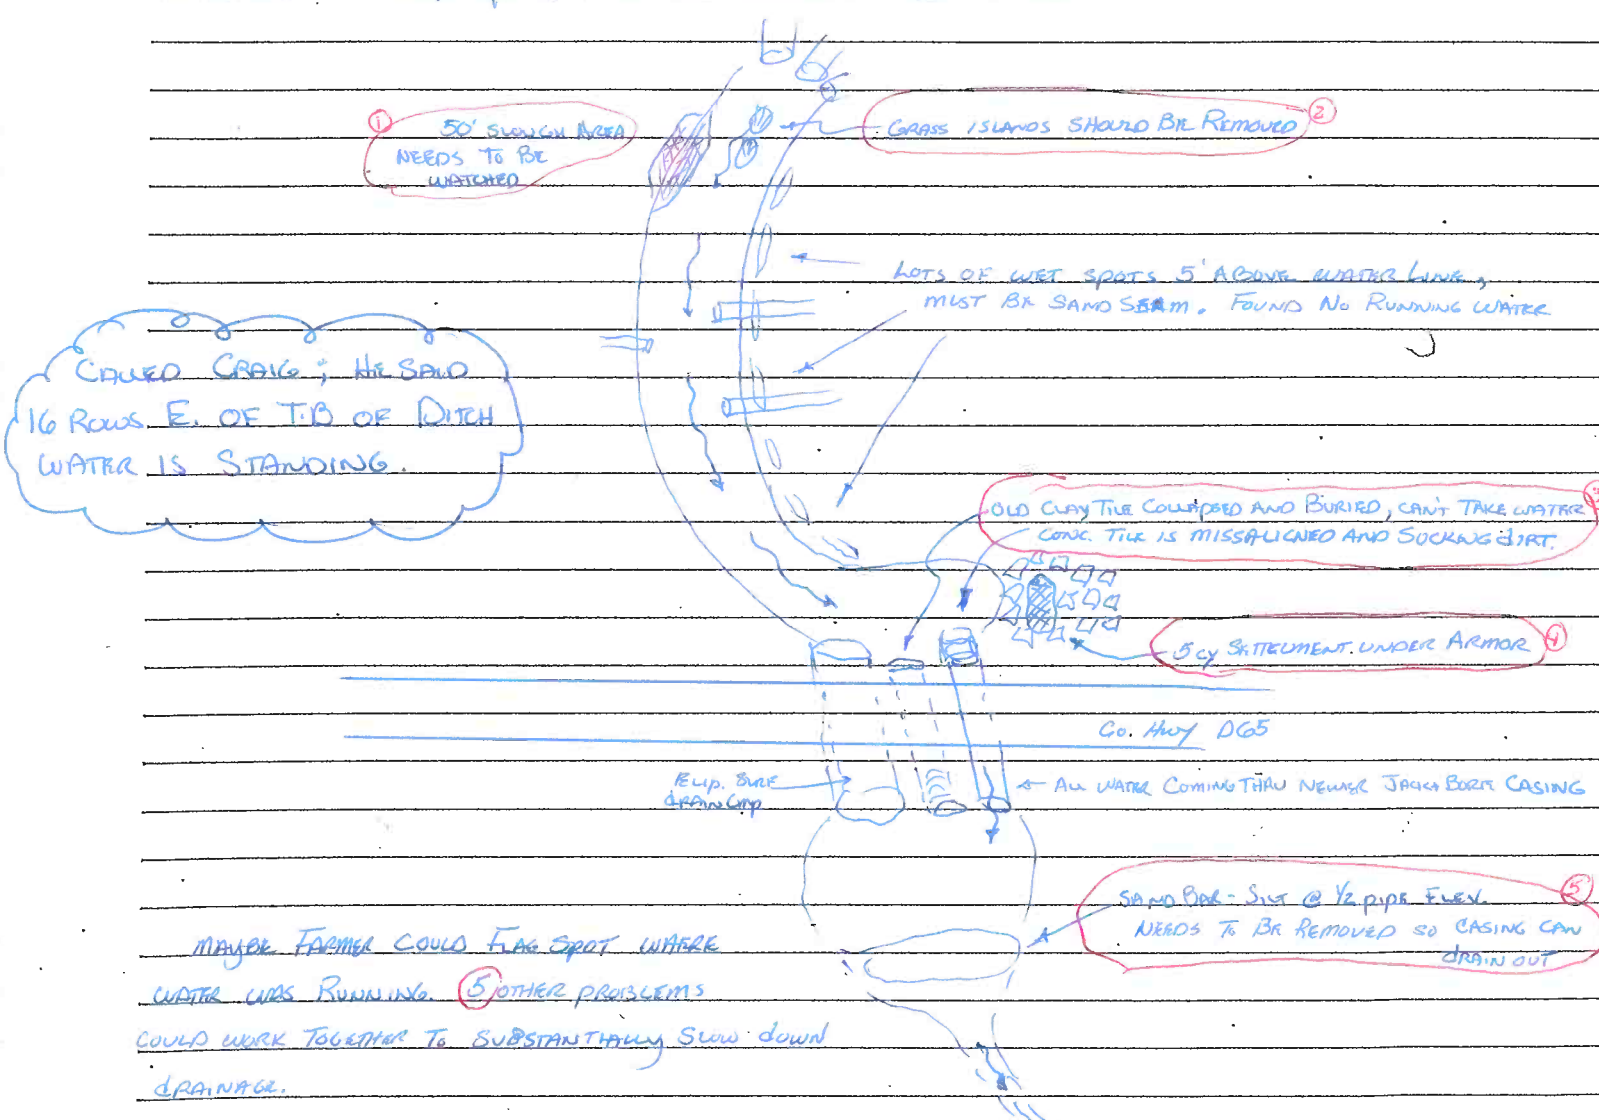 ①
50' SLOUGH AREA
NEEDS TO BE
WATCHED
GRASS ISLANDS SHOULD BE REMOVED
②
LOTS OF WET SPOTS 5' ABOVE WATER LINE,
MUST BE SAND SEAM. FOUND NO RUNNING WATER
CALLED CRAIG; HE SAID
16 ROWS E. OF T.B OF DITCH
WATER IS STANDING.
OLD CLAY TILE COLLAPSED AND BURIED, CAN'T TAKE WATER
CONC. TILE IS MISSALIGNED AND SUCKING DIRT.
5 CY SETTELMENT UNDER ARMOR
④
CO. HWY D65
ELIP. SURE
DRAIN CMP
ALL WATER COMING THRU NEWER JACK & BORE CASING
SAND BAR - SILT @ 1/2 PIPE ELEV.
⑤
NEEDS TO BE REMOVED SO CASING CAN
DRAIN OUT
MAYBE FARMER COULD FLAG SPOT WHERE
WATER WAS RUNNING. ⑤ OTHER PROBLEMS
COULD WORK TOGETHER TO SUBSTANTIALLY SLOW DOWN
DRAINAGE.